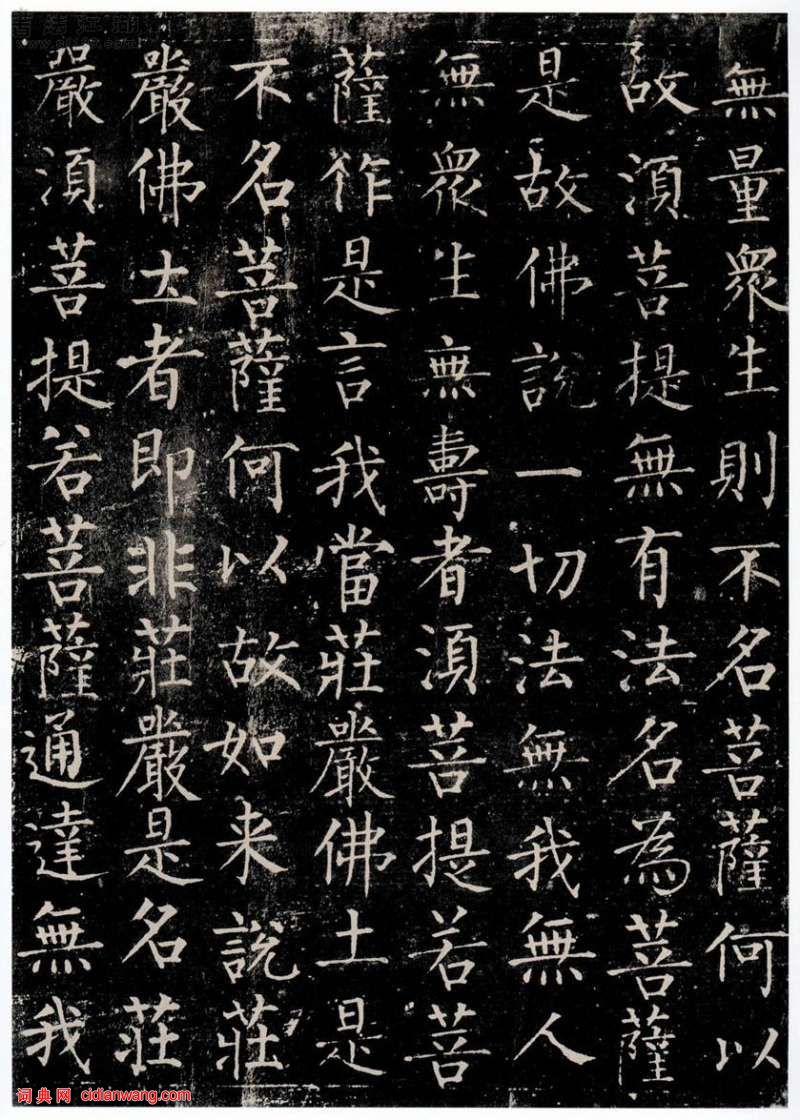 無量衆生則不名菩薩何以
故須菩提無有法名為菩薩
是故佛說一切法無我無人
無衆生無壽者須菩提若菩
薩作是言我當莊嚴佛土是
不名菩薩何以故如来說莊
嚴佛土者即非莊嚴是名莊
嚴須菩提若菩薩通達無我
词典网 cidianwang.com